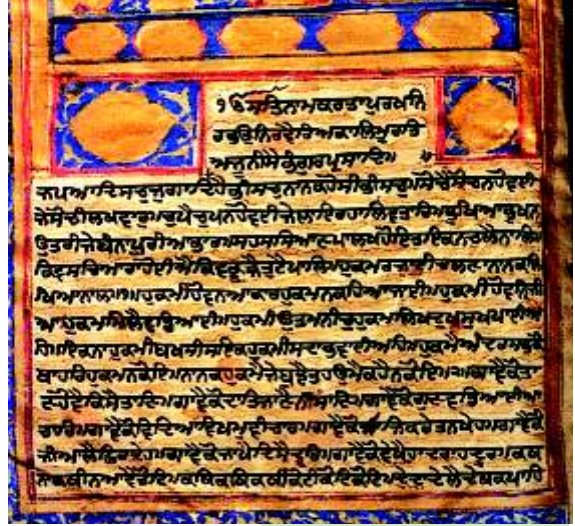 ੴਸਤਿਨਾਮੁਕਰਤਾਪੁਰਖੁਨਿ
ਰਭਉਨਿਰਵੈਰੁਅਕਾਲਮੂਰਤਿ
ਅਜੂਨੀਸੈਭੰਗੁਰਪ੍ਰਸਾਦਿ॥
ਜਪੁਆਦਿਸਚੁਜੁਗਾਦਿਹੈਭੀਸਚੁਨਾਨਕਹੋਸੀਭੀਸਚੁਸੋਚੈਸੋਚਿਨਹੋਵਈ
ਜੇਸੋਚੀਲਖਵਾਰ॥ਚੁਪੈਚੁਪਨਹੋਵਈਜੇਲਾਇਰਹਾਲਿਵਤਾਰ॥ਭੁਖਿਆਭੁਖਨ
ਉਤਰੀਜੇਬੰਨਾਪੁਰੀਆਭਾਰ॥ਸਹਸਸਿਆਣਪਾਲਖਹੋਹਿਤਇਕਨਚਲੈਨਾਲਿ॥
ਕਿਵਸਚਿਆਰਾਹੋਈਐਕਿਵਕੂੜੈਤੁਟੈਪਾਲਿ॥ਹੁਕਮਿਰਜਾਈਚਲਣਾਨਾਨਕਲਿ
ਖਿਆਨਾਲਿ॥੧॥ਹੁਕਮੀਹੋਵਨਿਆਕਾਰਹੁਕਮੁਨਕਹਿਆਜਾਈ॥ਹੁਕਮੀਹੋਵਨਿਜੀ
ਅਹੁਕਮਿਮਿਲੈਵਡਿਆਈ॥ਹੁਕਮੀਉਤਮੁਨੀਚੁਹੁਕਮਿਲਿਖਿਦੁਖਸੁਖਪਾਈਅ
ਹਿ॥ਇਕਨਾਹੁਕਮੀਬਖਸੀਸਇਕਿਹੁਕਮੀਸਦਾਭਵਾਈਅਹਿ॥ਹੁਕਮੈਅੰਦਰਿਸਭੁਕੋ
ਬਾਹਰਿਹੁਕਮਨਕੋਇ॥ਨਾਨਕਹੁਕਮੈਜੇਬੁਝੈਤਹਉਮੈਕਹੈਨਕੋਇ॥੨॥ਗਾਵੈਕੋਤਾ
ਣੁਹੋਵੈਕਿਸੈਤਾਣੁ॥ਗਾਵੈਕੋਦਾਤਿਜਾਣੈਨੀਸਾਣੁ॥ਗਾਵੈਕੋਗੁਣਵਡਿਆਈਆ
ਚਾਰ॥ਗਾਵੈਕੋਵਿਦਿਆਵਿਖਮੁਵੀਚਾਰੁ॥ਗਾਵੈਕੋਸਾਜਿਕਰੇਤਨੁਖੇਹ॥ਗਾਵੈਕੋ
ਜੀਅਲੈਫਿਰਿਦੇਹ॥ਗਾਵੈਕੋਜਾਪੈਦਿਸੈਦੂਰਿ॥ਗਾਵੈਕੋਵੇਖੈਹਾਦਰਾਹਦੂਰਿ॥ਕਥ
ਨਾਕਥੀਨਆਵੈਤੋਟਿ॥ਕਥਿਕਥਿਕਥੀਕੋਟੀਕੋਟਿਕੋਟਿ॥ਦੇਦਾਦੇਲੈਦੇਥਕਿਪਾਹਿ